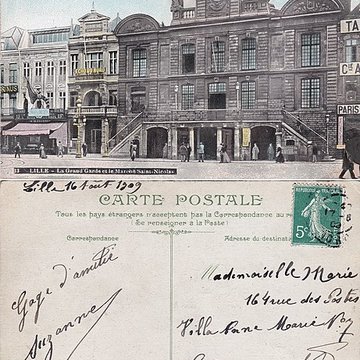 TA
PARIS
LILLE - La Grand'Garde et le Marché Saint-Nicolas
Lille 16 Août 1909
CARTE POSTALE
Tous les pays étrangers n'acceptent pas la Correspondance au recto
(Se renseigner à la Poste)
Correspondance
Adresse du destinat
5c
Gage d'amitié
Suzanne
Mademoiselle Marie
164 rue des Postes
Villa Marie